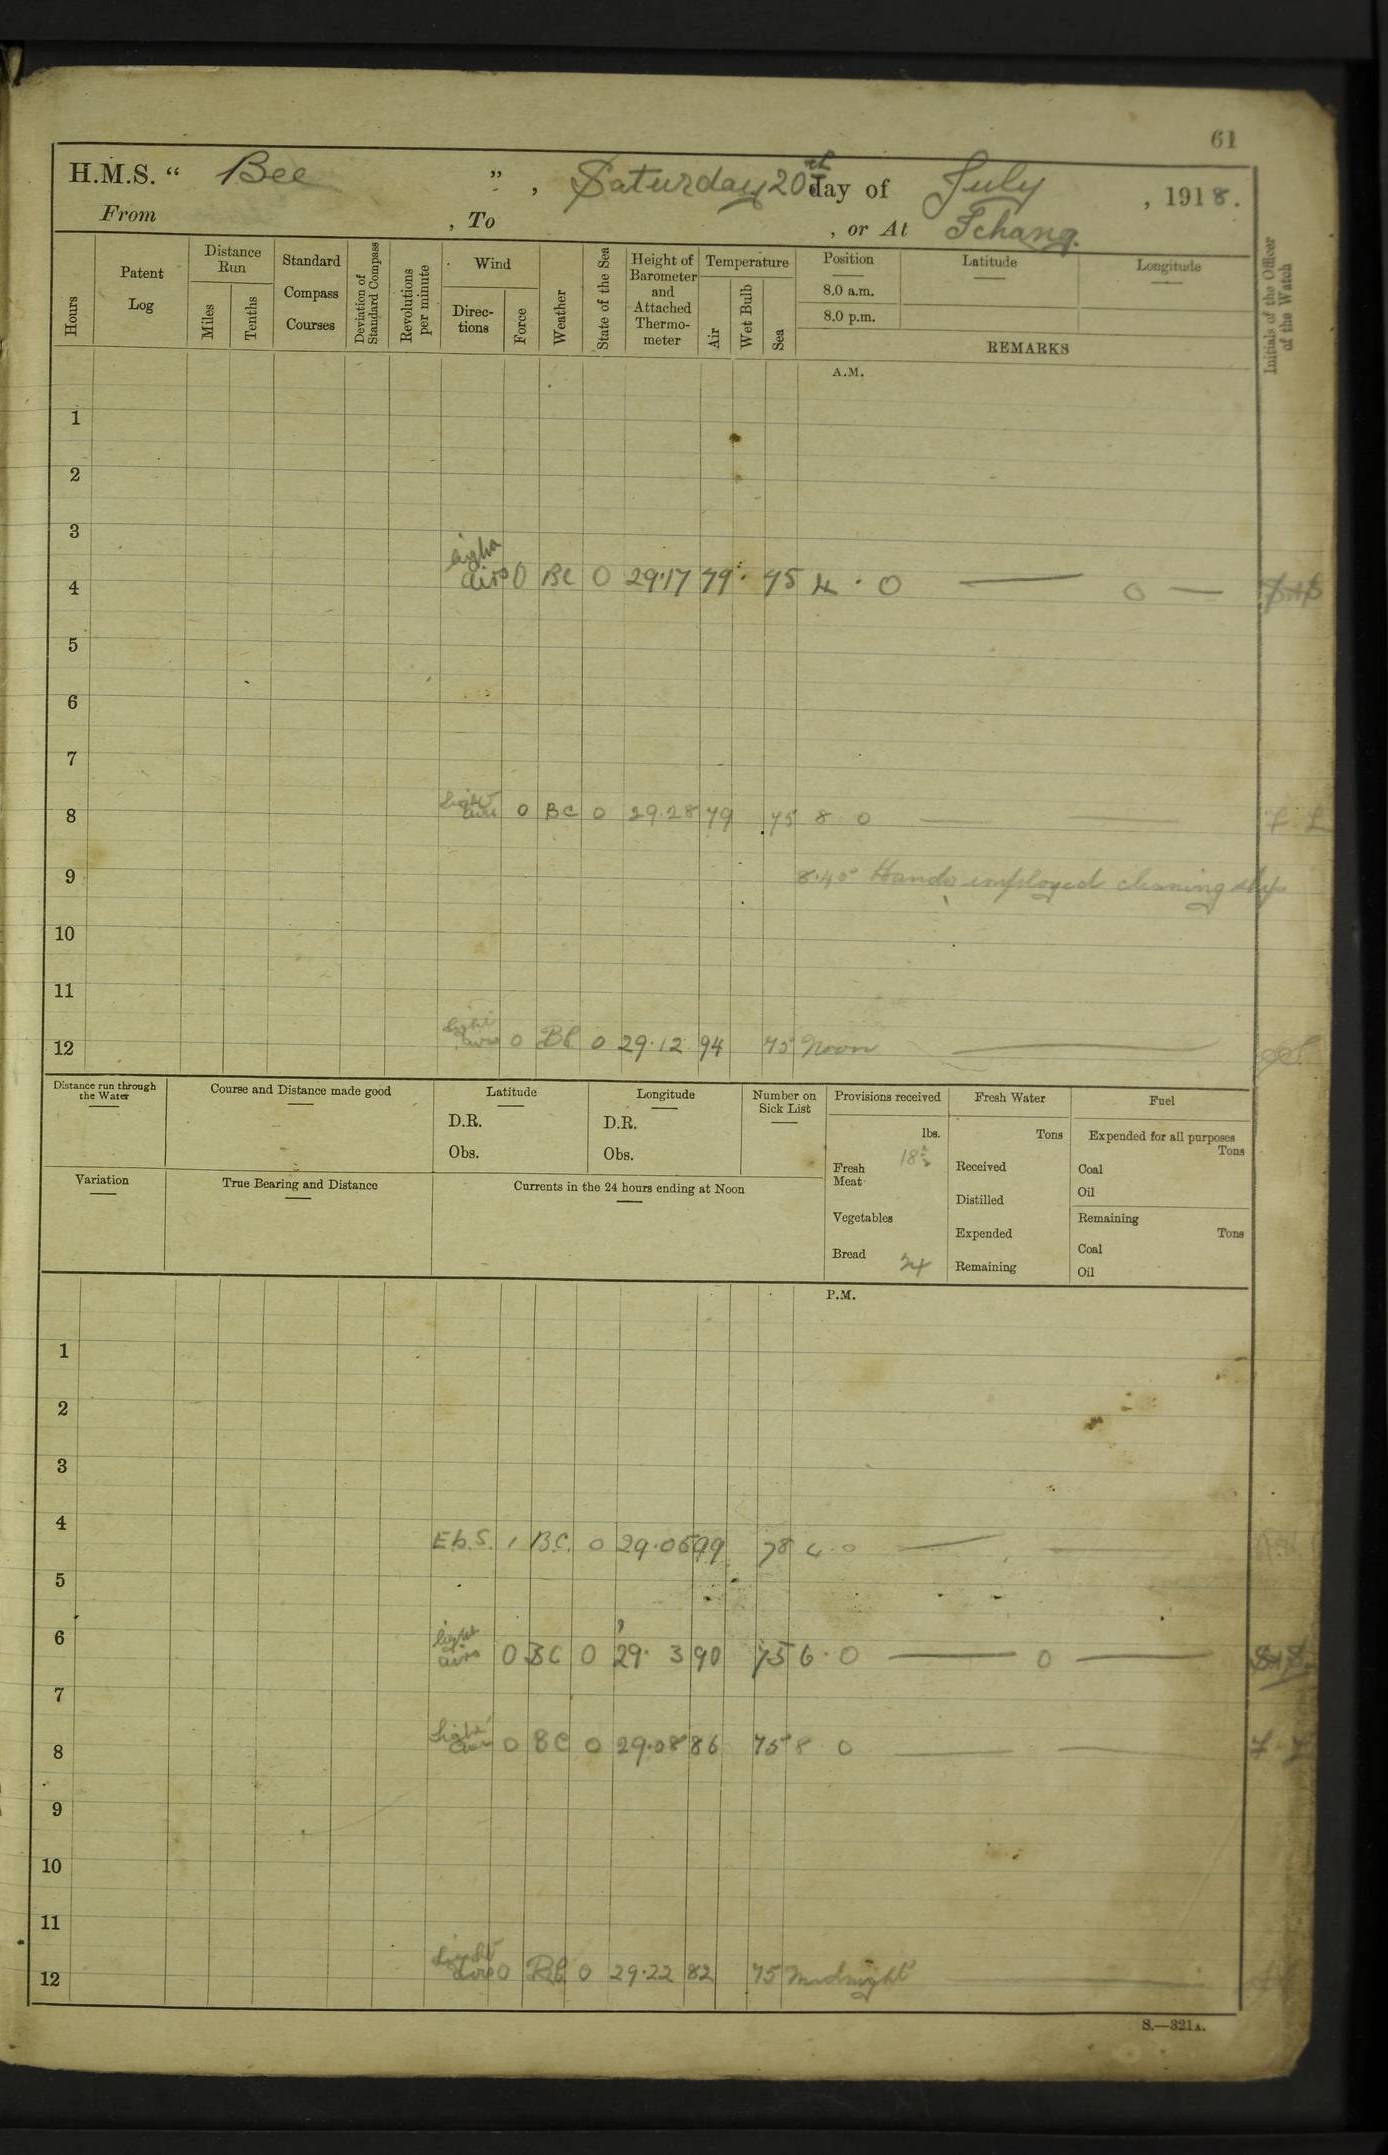 61
H.M.S. “ Bee ” , Saturday 20th day of July , 1918.
From , To , or At Ichang.
Hours
Patent Log
Distance Run
Miles
Tenths
Standard Compass Courses
Deviation of Standard Compass
Revolutions per minute
Wind
Directions
Force
Weather
State of the Sea
Height of Barometer and Attached Thermometer
Temperature
Air
Wet Bulb
Sea
Position
8.0 a.m.
8.0 p.m.
Latitude
Longitude
REMARKS
Initials of the Officer of the Watch
A.M.
1
2
3
4 light airs 0 BC 0 29.17 79 75 4.0 — 0 —
5
6
7
8 light airs 0 BC 0 29.28 79 75 8 0 — —
9 8.40 Hands employed cleaning ship
10
11
12 light airs 0 BC 0 29.12 94 75 Noon —
Distance run through the Water
Course and Distance made good
Latitude
D.R.
Obs.
Longitude
D.R.
Obs.
Number on Sick List
Provisions received
lbs.
Fresh Meat
Vegetables
Bread 24
Fresh Water
Tons
Received
Distilled
Expended
Remaining
Fuel
Expended for all purposes
Tons
Coal
Oil
Remaining
Tons
Coal
Oil
Variation
True Bearing and Distance
Currents in the 24 hours ending at Noon
P.M.
1
2
3
4 EbS. 1 B.C. 0 29.05 99 78 4.0 — —
5
6 light airs 0 BC 0 29. 3 90 75 6.0 — 0 —
7
8 light airs 0 BC 0 29.08 86 75 8 0 — —
9
10
11
12 light airs 0 BC 0 29.22 82 75 Midnight —
S.—321A.